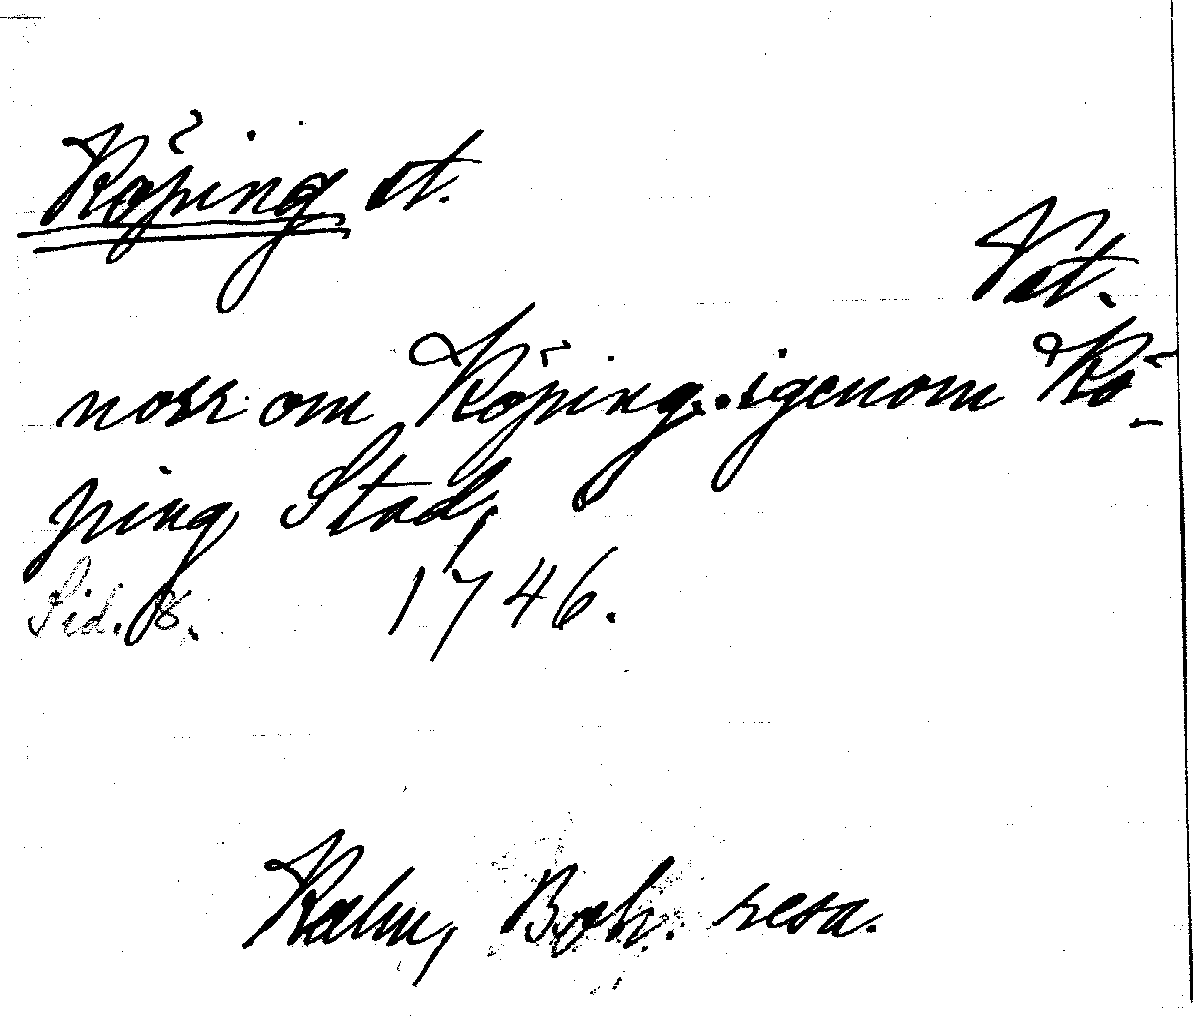 Köping st.
Vst.
norr om Köping. igenom Kö-
ping Stad,
Sid. 8. 1746.
Kalm, Boh. resa.